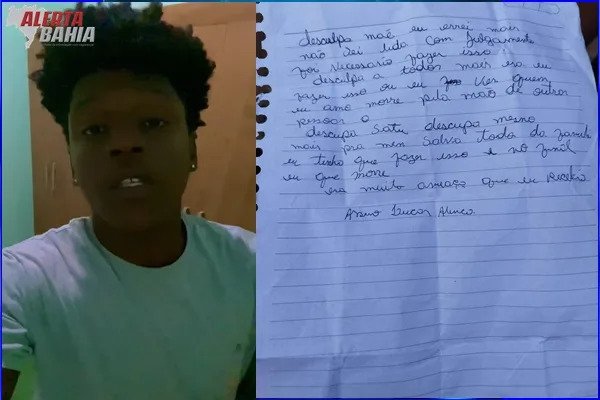 ALERTA
BAHIA
desculpa mãe eu errei mais
não sei lida com julgamento
foi necessario fazer isso!
desculpa a todos mais era eu
fazer isso ou eu ver quem
eu amo morre pela mão de outras
pessoas
descupa Satu descupa mesmo
mais pra mim salva toda da
eu tenho que fazer isso e no final
eu que morre
era muito amiaço que eu recebia
Lucas